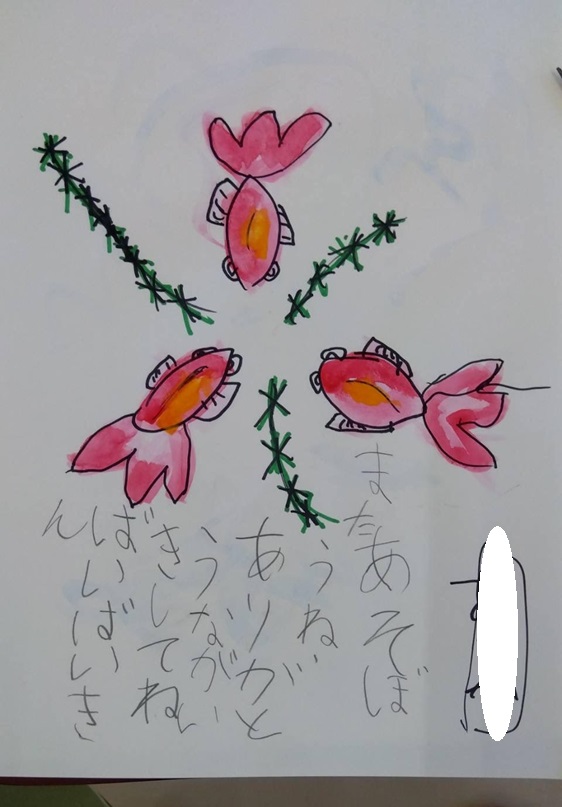 またあそぼ
うね
ありがと
うながい
きしてね
ばいばいき
ん